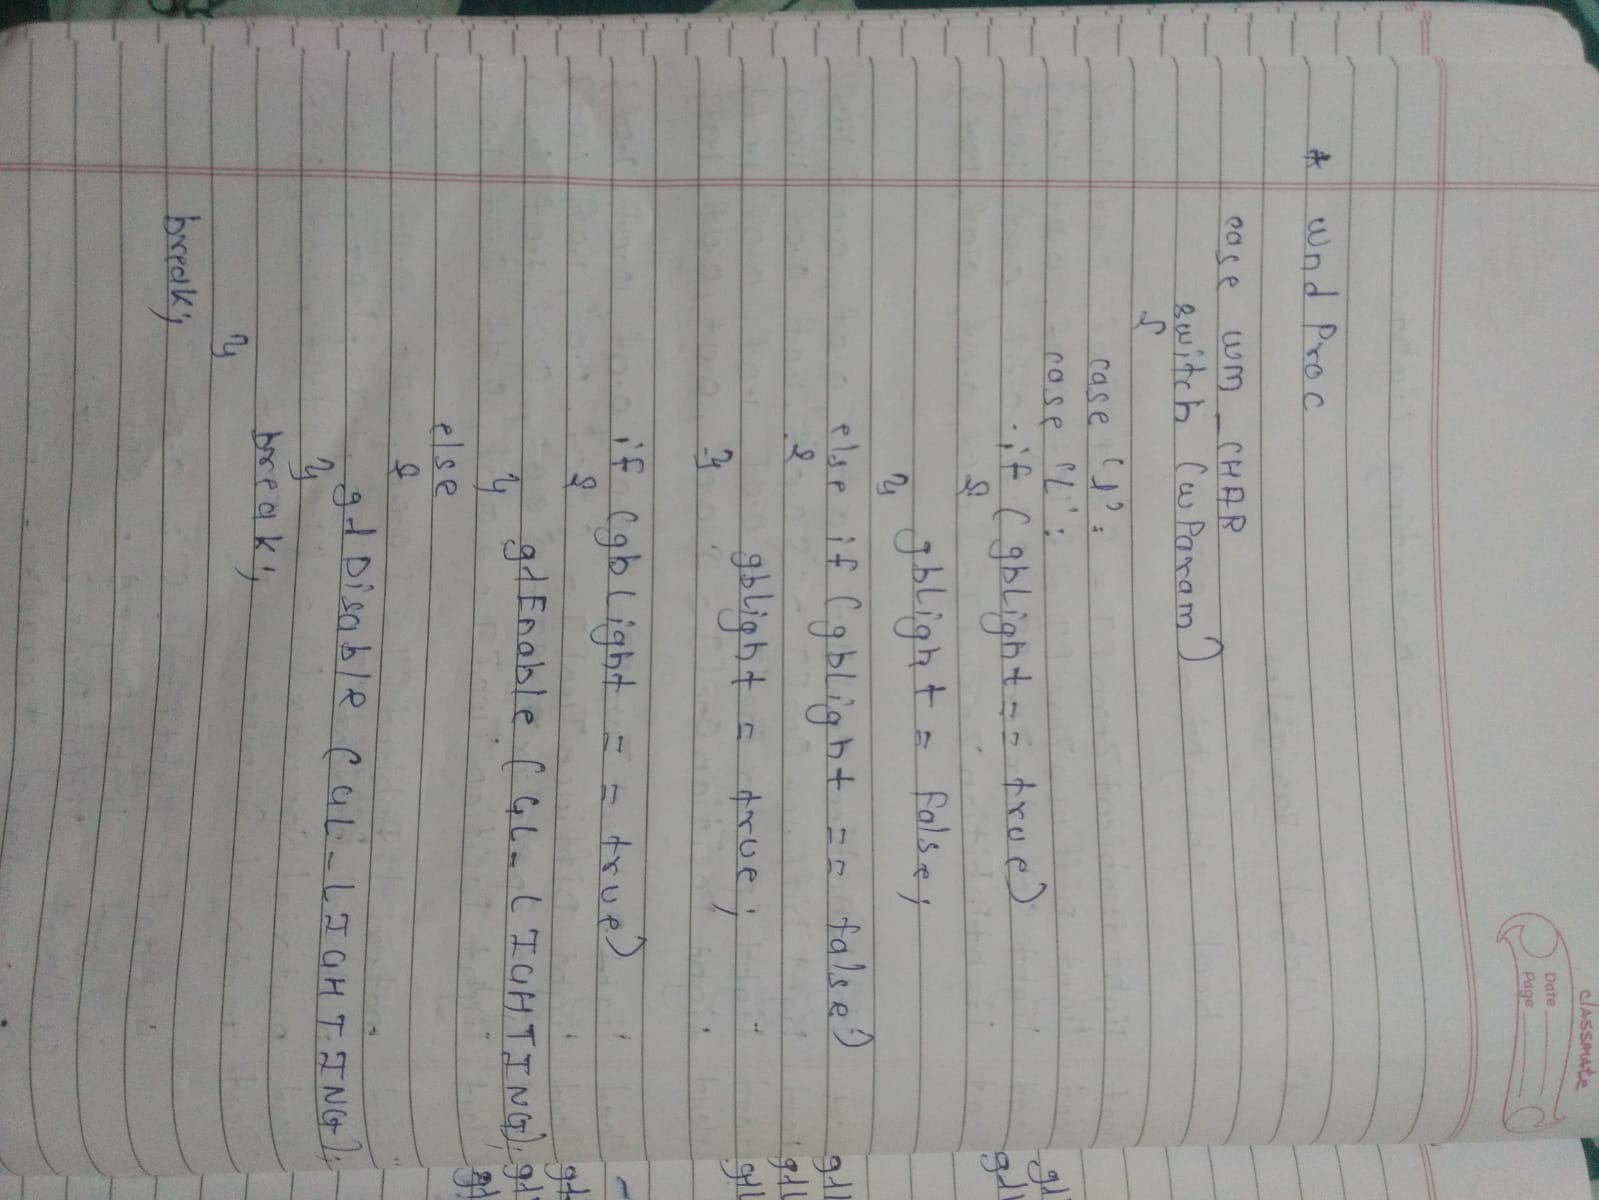 classmate
Date
Page
* WndProc
case WM_CHAR
switch (wParam)
{
case 'l':
case 'L':
if (gbLight == true)
{
gbLight = false;
}
else if (gbLight == false)
{
gbLight = true;
}
if (gbLight == true)
{
glEnable (GL_LIGHTING);
}
else
{
glDisable (GL_LIGHTING);
}
break;
}
break;